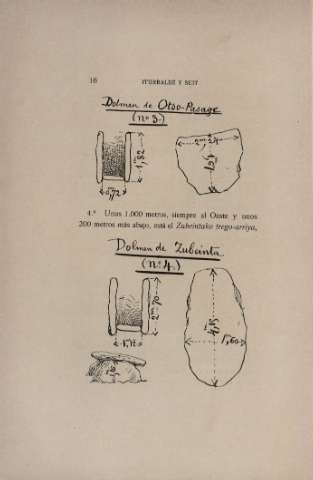 16 ITURRALDE Y SUIT
Dolmen de Otso-Pasage
(nº 3.)
2ᵐ,24
1ᵐ,82
0ᵐ,72
4.º Unos 1.000 metros, siempre al Oeste y unos
200 metros más abajo, está el Zubeintako trego-arriya,
Dolmen de Zubeinta.
(nº 4.)
2ᵐ,70
1ᵐ,60